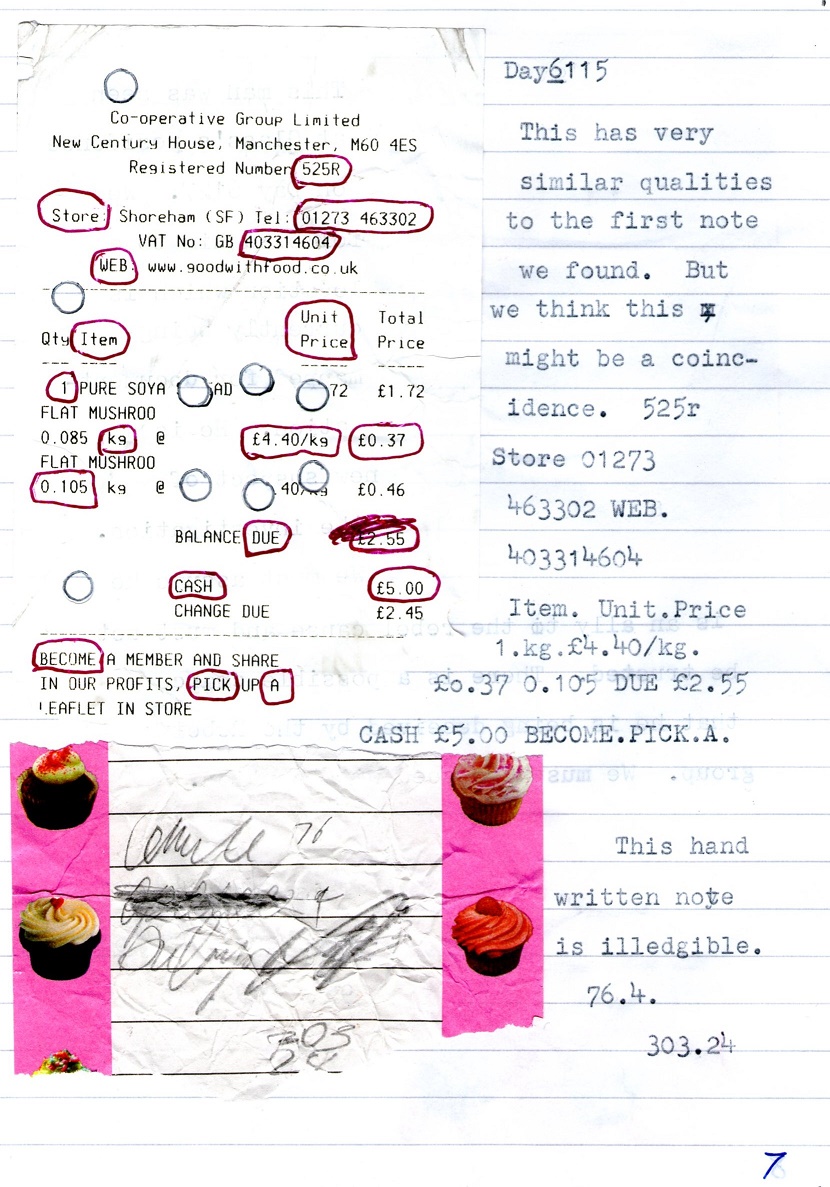 Co-operative Group Limited
New Century House, Manchester, M60 4ES
Registered Number 525R
Store: Shoreham (SF) Tel: 01273 463302
VAT No: GB 403314604
WEB: www.goodwithfood.co.uk
Qty Item Unit Price Total Price
1 PURE SOYA AD 72 £1.72
FLAT MUSHROO
0.085 kg @ £4.40/kg £0.37
FLAT MUSHROO
0.105 kg @ .40/kg £0.46
BALANCE DUE £2.55
CASH £5.00
CHANGE DUE £2.45
BECOME A MEMBER AND SHARE
IN OUR PROFITS, PICK UP A
LEAFLET IN STORE
Day6115
This has very
similar qualities
to the first note
we found. But
we think this
might be a coinc-
idence. 525r
Store 01273
463302 WEB.
403314604
Item. Unit.Price
1.kg.£4.40/kg.
£0.37 0.105 DUE £2.55
CASH £5.00 BECOME.PICK.A.
76
4
303
24
This hand
written note
is illedgible.
76.4.
303.24
7